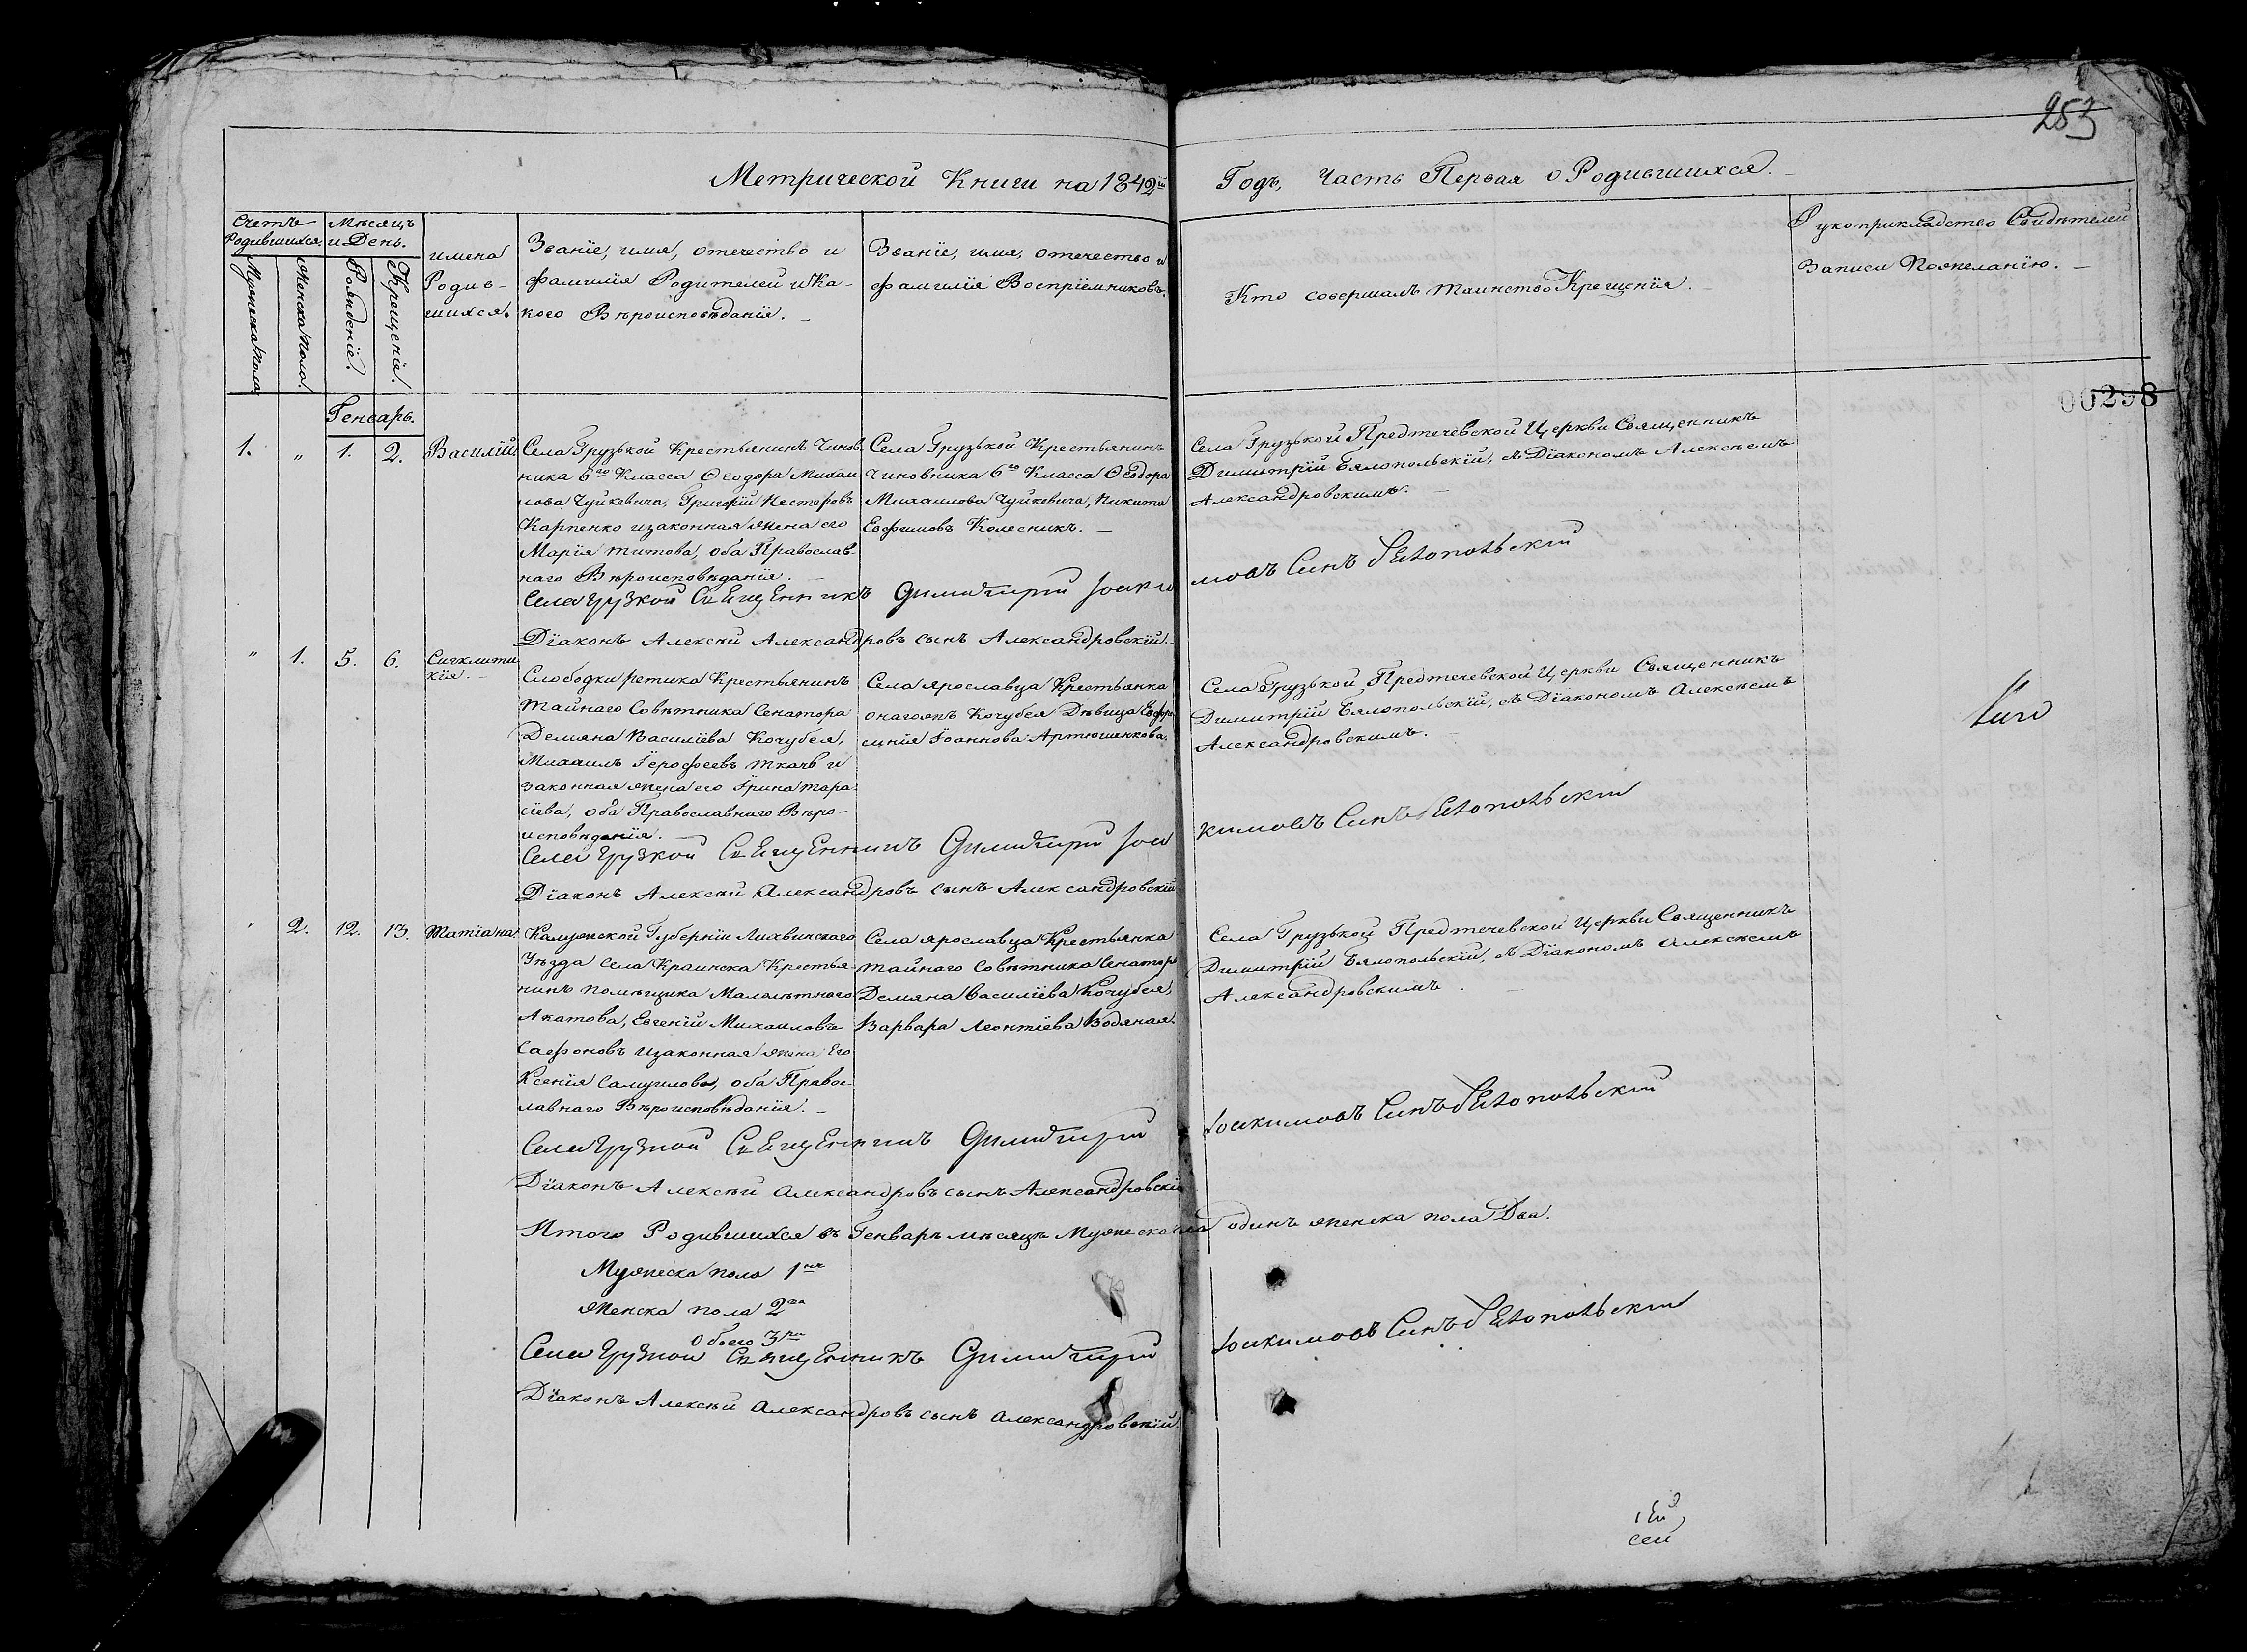 253
Метрической Книги на 1842й Годъ, Часть Первая о Родившихся.
Счетъ Родившихся.
Мѣсяцъ и День.
Мужеска пола.
Женска пола.
Рожденіе.
Крещеніе.
имена
Родив-
шихся.
Званіе, имя, отечество и
фамилія Родителей и Ка-
кого Вѣроисповѣданія.
Званіе, имя, отечество и
фамилія Воспріемниковъ.
Кто совершалъ таинство Крещенія.
Рукоприкладство Свидѣтелей
Записи По желанію.
00298
Генварь.
1. „ 1. 2. Василій.
Села Грузькой Крестьянинъ Чинов-
ника 6го Класса Ѳеодора Михаи-
лова Чуйкевича, Григорій Нестеровъ
Карпенко и законная жена его
Марія Титова, оба Православ-
наго Вѣроисповѣданія.
Села Грузькой Крестьянинъ
Чиновника 6го Класса Ѳеодора
Михаилова Чуйкевича, Никита
Евфимовъ Колесникъ.
Села Грузькой Предтечевской Церкви Священникъ
Димитрій Бялопольскій, съ Діакономъ Алексѣемъ
Александровскимъ.
Села Грузкой Священникъ Димитрій Іоакимовъ Синъ Бѣлопольскій
Діаконъ Алексѣй Александровъ сынъ Александровскій.
„ 1. 5. 6. Сигклити
кія.
Слободки Ретика Крестьянинъ
Тайнаго Совѣтника Сенатора
Демяна Василіева Кочубея,
Михаилъ Герофеевъ Ткачъ и
законная жена его Ірина Тара-
сіева, оба Православнаго Вѣро-
исповѣданія.
Села Ярославца Крестьянка
онагожъ Кочубея Дѣвица Евфро
синія Іоаннова Артюшенкова.
Села Грузькой Предтечевской Церкви Священникъ
Димитрій Бялопольскій, съ Діакономъ Алексѣемъ
Александровскимъ.
Села Грузкой Священникъ Димитрій Іоакимовъ Синъ Бѣлопольскій
Діаконъ Алексѣй Александровъ сынъ Александровскій
„ 2. 12. 13. Татіана.
Калужской Губерніи Лихвинскаго
Уѣзда Села Краинска Крестья-
нинъ помѣщика Малолѣтнаго
Акатова, Евгеній Михаиловъ
Сафоновъ и законная жена Его
Ксенія Самуилова, оба Правос-
лавнаго Вѣроисповѣданія.
Села Ярославца Крестьянка
Тайнаго Совѣтника Сенатора
Демяна Василіева Кочубея,
Варвара Леонтіева Водяная.
Села Грузькой Предтечевской Церкви Священникъ
Димитрій Бялопольскій, съ Діакономъ Алексѣемъ
Александровскимъ.
Села Грузкой Священникъ Димитрій Іоакимовъ Синъ Бѣлопольскій
Діаконъ Алексѣй Александровъ сынъ Александровскій
Итого Родившихся въ Генварѣ мѣсяцѣ Мужеска пола одинъ женска пола Два.
Мужеска пола 1нъ
Женска пола 2ва
Обоего 3ри
Села Грузкой Священникъ Димитрій Іоакимовъ Синъ Бѣлопольскій
Діаконъ Алексѣй Александровъ сынъ Александровскій.
сей